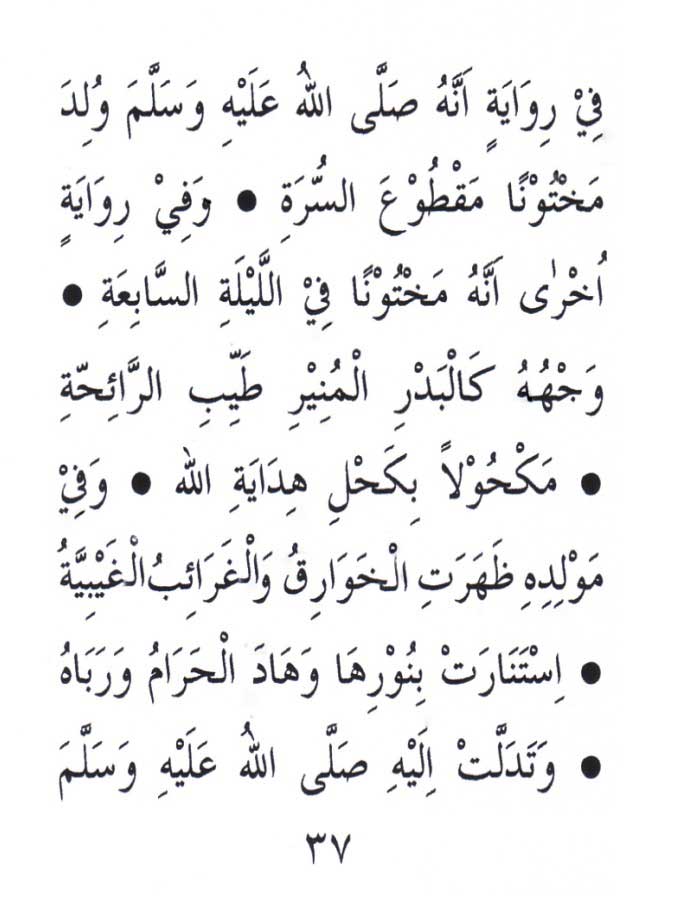 فِيْ رِوَايَةٍ اَنَّهُ صَلَّى اللهُ عَلَيْهِ وَسَلَّمَ وُلِدَ
مَخْتُوْنًا مَقْطُوْعَ السُّرَةِ ● وَفِيْ رِوَايَةٍ
اُخْرٰى اَنَّهُ مَخْتُوْنًا فِيْ اللَّيْلَةِ السَّابِعَةِ ●
وَجْهُهُ كَالْبَدْرِ الْمُنِيْرِ طَيِّبِ الرَّائِحَّةِ
● مَكْحُوْلاً بِكَحْلِ هِدَايَةِ الله ● وَفِيْ
مَوْلِدِهِ ظَهَرَتِ الْخَوَارِقُ وَالْغَرَائِبُ الْغَيْبِيَّةُ
● اِسْتَنَارَتْ بِنُوْرِهَا وَهَادَ الْحَرَامُ وَرَبَاهُ
● وَتَدَلَّتْ اِلَيْهِ صَلَّى اللهُ عَلَيْهِ وَسَلَّمَ
٣٧